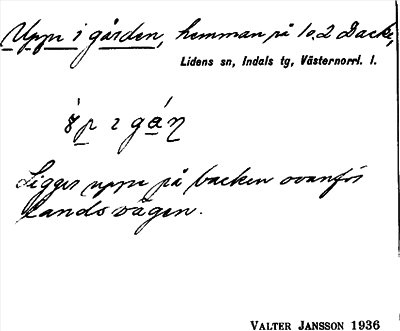 Uppe i gården, hemman på 10.2 Backe,
Lidens sn, Indals tg, Västernorrl. l.
Ligger uppe på backen ovanför
landsvägen.
VALTER JANSSON 1936